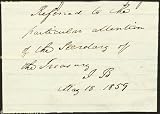 Referred to the
particular attention
of the Secretary of
the Treasury
J B
May 18 1859